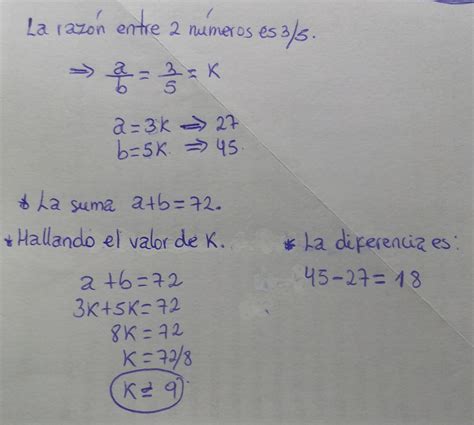 La razón entre 2 números es 3/5.
⇒ a/b = 3/5 = K
a=3K ⇒ 27
b=5K ⇒ 45
* La suma a+b=72.
* Hallando el valor de K.
a+b=72
3K+5K=72
8K=72
K=72/8
K=9
* La diferencia es:
45-27=18